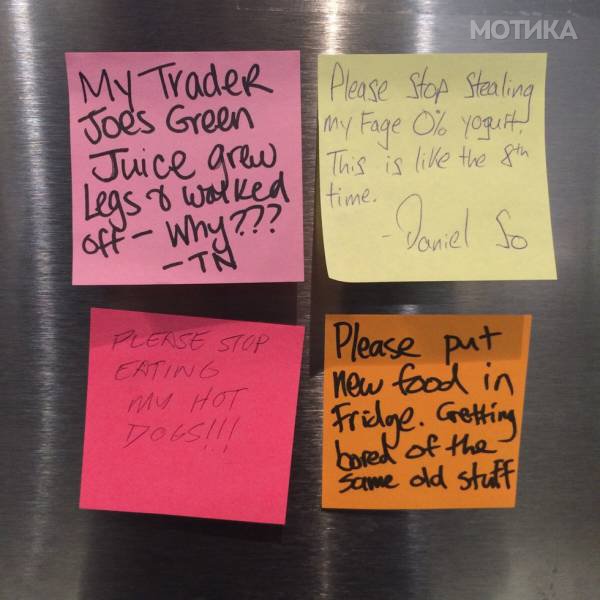 МОТИКА
My Trader
Joes Green
Juice grew
Legs & walked
off - Why???
- TN
Please Stop Stealing
my Fage 0% yogurt.
This is like the 8th
time.
- Daniel So
PLEASE STOP
EATING
MY HOT
DOGS!!!
Please put
new food in
Fridge. Getting
bored of the
same old stuff